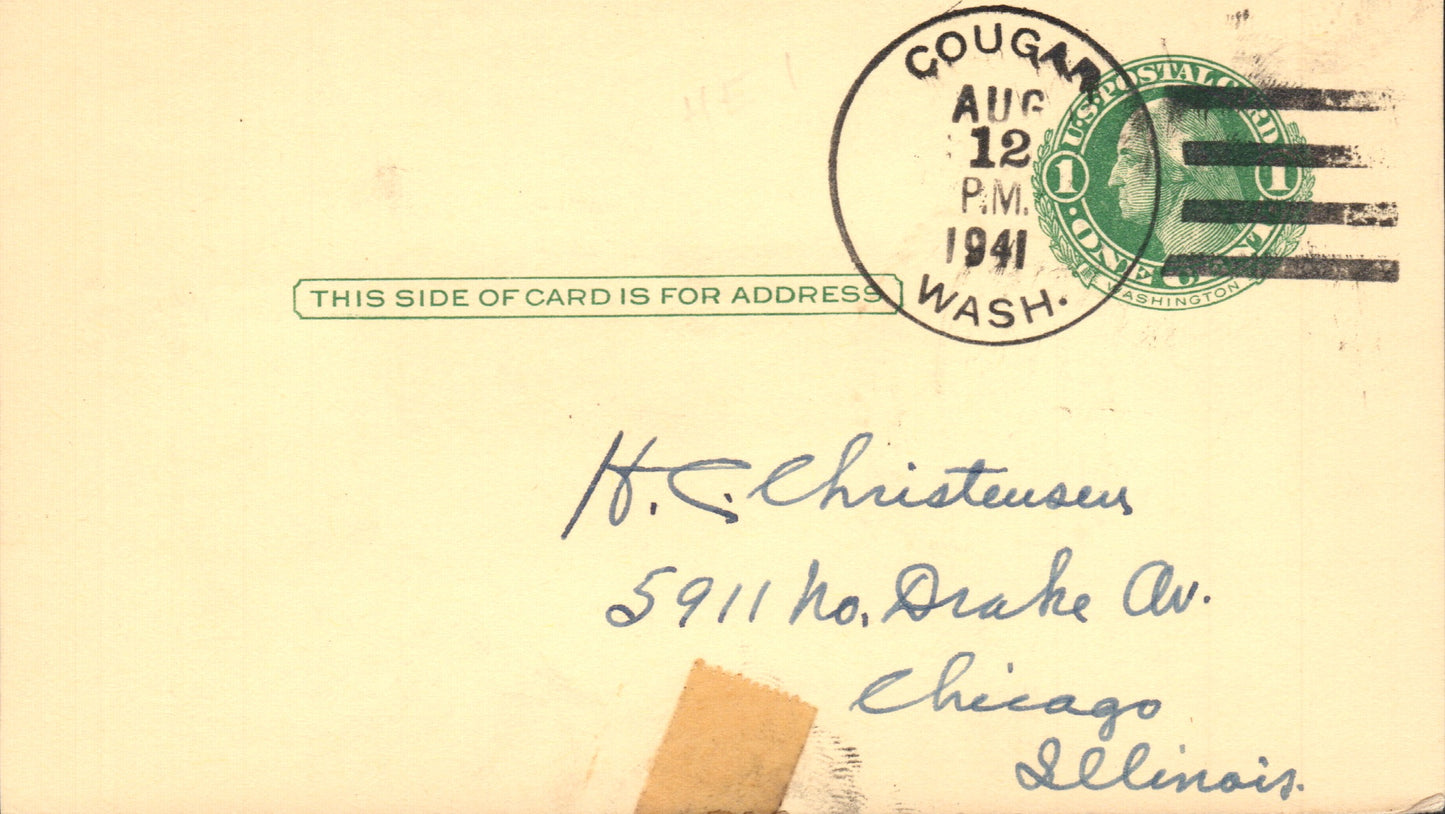 COUGAR
AUG
12
P.M.
1941
WASH.
U.S. POSTAL CARD
1 1
ONE CENT
WASHINGTON
THIS SIDE OF CARD IS FOR ADDRESS
H. C. Christensen
5911 No. Drake Av.
Chicago
Illinois.